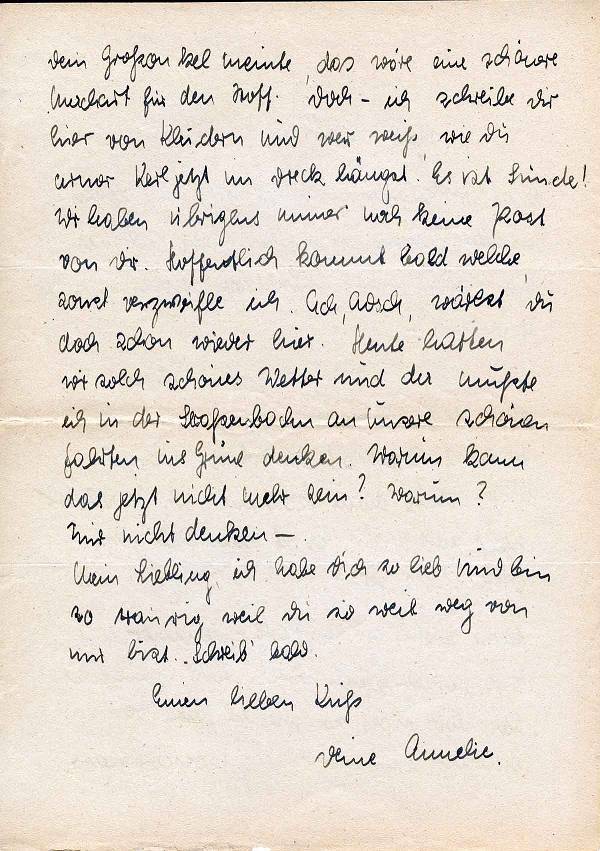 Dein Großonkel meinte, das wäre eine schönere
für den Stoff. Doch – ich schreibe dir
hier von Kleidern und wer weiß, wie du
armer Kerl jetzt im Dreck hängst. Es ist Sünde!
Wir haben übrigens immer noch keine Post
von dir. Hoffentlich kommt bald welche,
sonst verzweifle ich. Ach, , wärest du
doch schon wieder hier. Heute hatten
wir solch schönes Wetter und da mußte
ich in der Straßenbahn an unsere schönen
Fahrten ins Grüne denken. Warum kann
das jetzt nicht mehr sein? Warum?
Nur nicht denken –
Mein Liebling, ich habe dich so lieb und bin
so traurig weil du so weit weg von
mir bist. Schreib' bald.
Einen lieben Kuß
Deine Annelie.